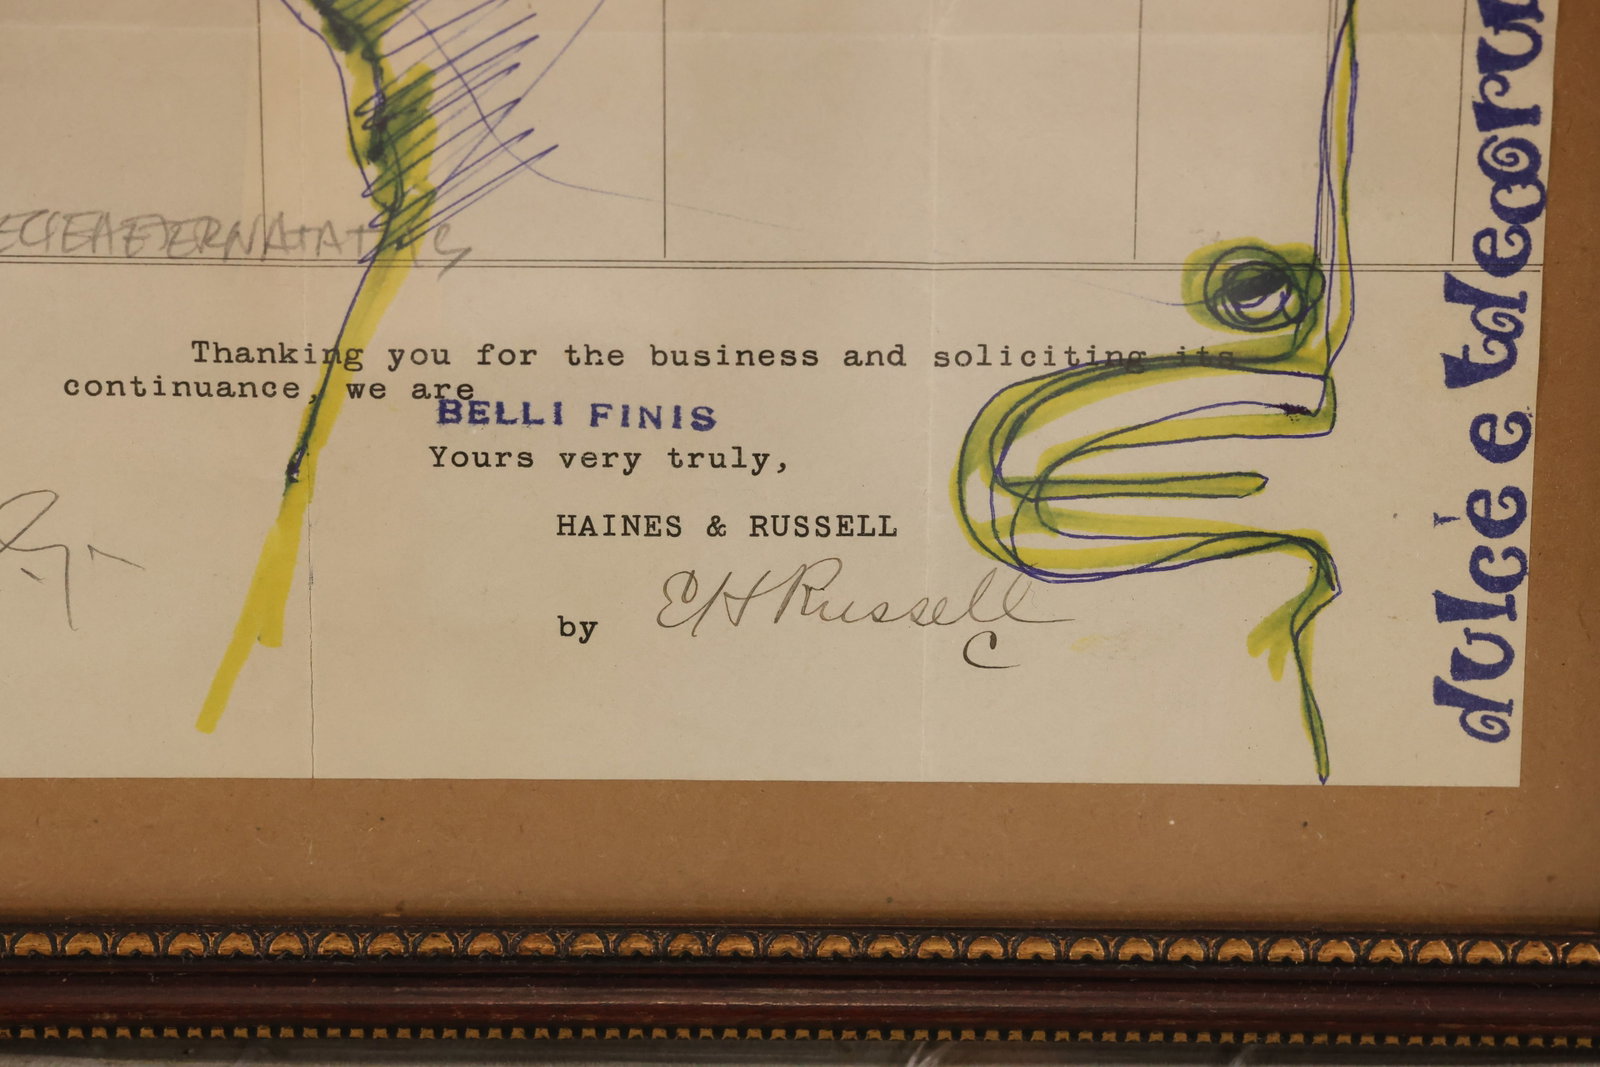 Thanking you for the business and soliciting its
continuance, we are
BELLI FINIS
Yours very truly,
HAINES & RUSSELL
by EH Russell
C
dulce e tdecoru